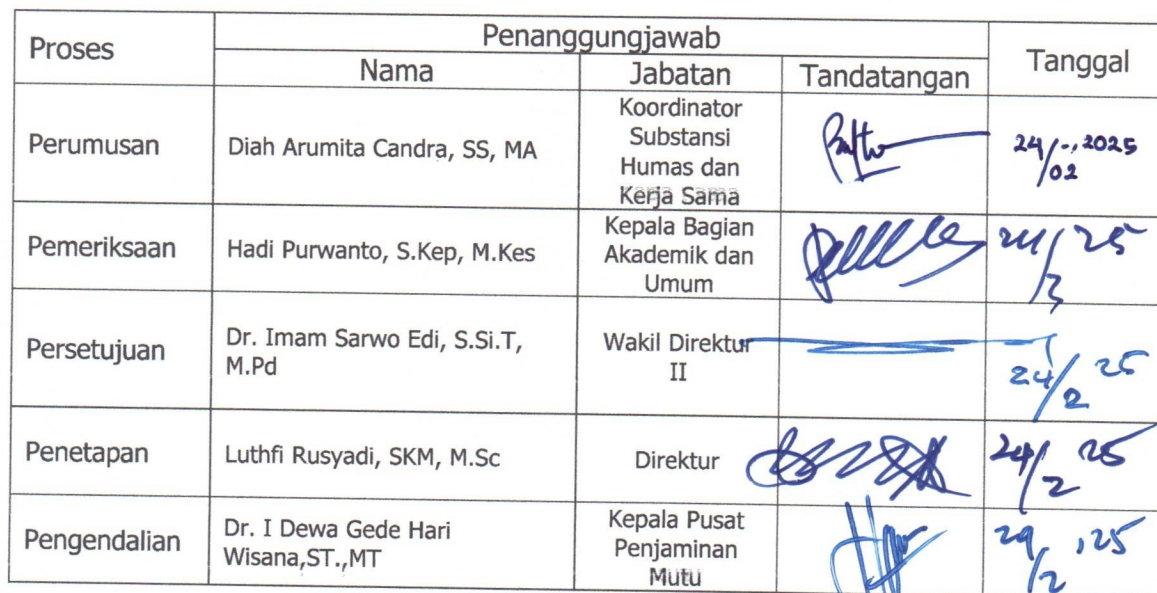 Proses
Penanggungjawab
Tanggal
Nama
Jabatan
Tandatangan
Perumusan
Diah Arumita Candra, SS, MA
Koordinator
Substansi
Humas dan
Kerja Sama
24/02 2025
Pemeriksaan
Hadi Purwanto, S.Kep, M.Kes
Kepala Bagian
Akademik dan
Umum
24/3 25
Persetujuan
Dr. Imam Sarwo Edi, S.Si.T,
M.Pd
Wakil Direktur
II
24/2 25
Penetapan
Luthfi Rusyadi, SKM, M.Sc
Direktur
24/2 25
Pengendalian
Dr. I Dewa Gede Hari
Wisana,ST.,MT
Kepala Pusat
Penjaminan
Mutu